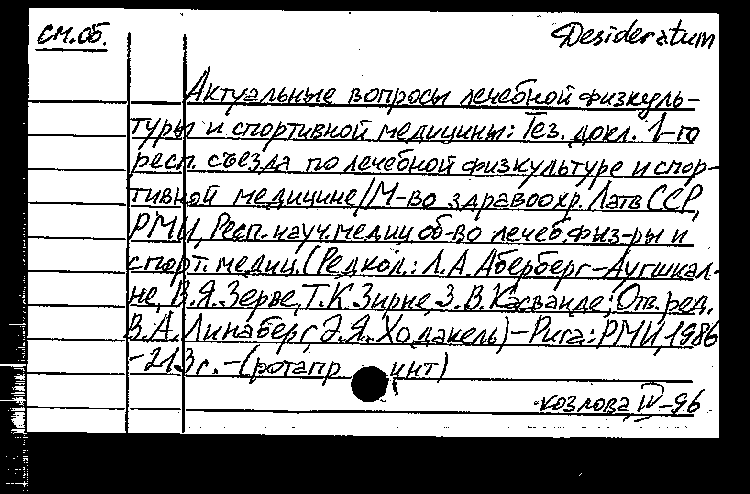 см. об.
Desideratum
Актуальные вопросы лечебной физкуль-
туры и спортивной медицины: Тез. докл. 1-го
респ. съезда по лечебной физкультуре и спор-
тивной медицине/М-во здравоохр. Латв ССР,
РМИ, Респ. науч. медиц об-во лечеб. физ-ры и
спорт. медиц. (Редкол.: Л.А. Аберберг-Аугшкал-
не, В.Я. Зерве, Т.К. Зирне, З.В. Касванде; Отв. ред.
В.А. Линаберг, Э.Я. Ходакель) - Рига: РМИ, 1986
-213 с. - (ротапр инт)
козлова IV-96